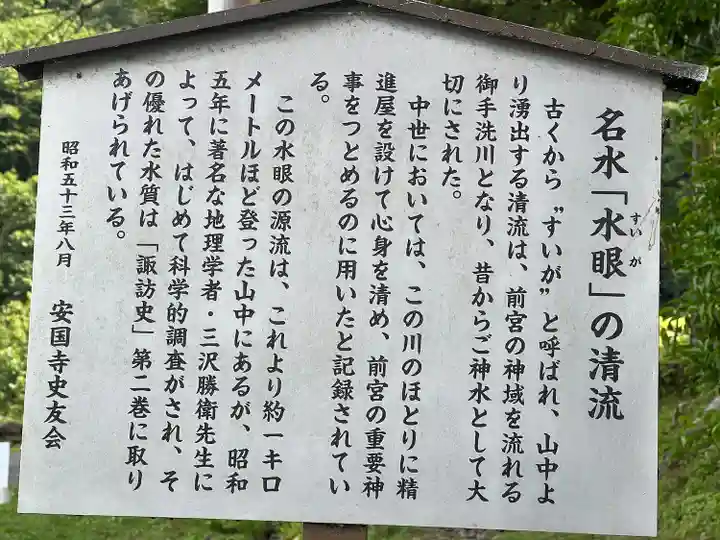 名水「水眼」の清流
すいが
古くから〝すいが〟と呼ばれ、山中よ
り湧出する清流は、前宮の神域を流れる
御手洗川となり、昔からご神水として大
切にされた。
中世においては、この川のほとりに精
進屋を設けて心身を清め、前宮の重要神
事をつとめるのに用いたと記録されてい
る。
この水眼の源流は、これより約一キロ
メートルほど登った山中にあるが、昭和
五年に著名な地理学者・三沢勝衛先生に
よって、はじめて科学的調査がされ、そ
の優れた水質は「諏訪史」第二巻に取り
あげられている。
昭和五十三年八月　安国寺史友会